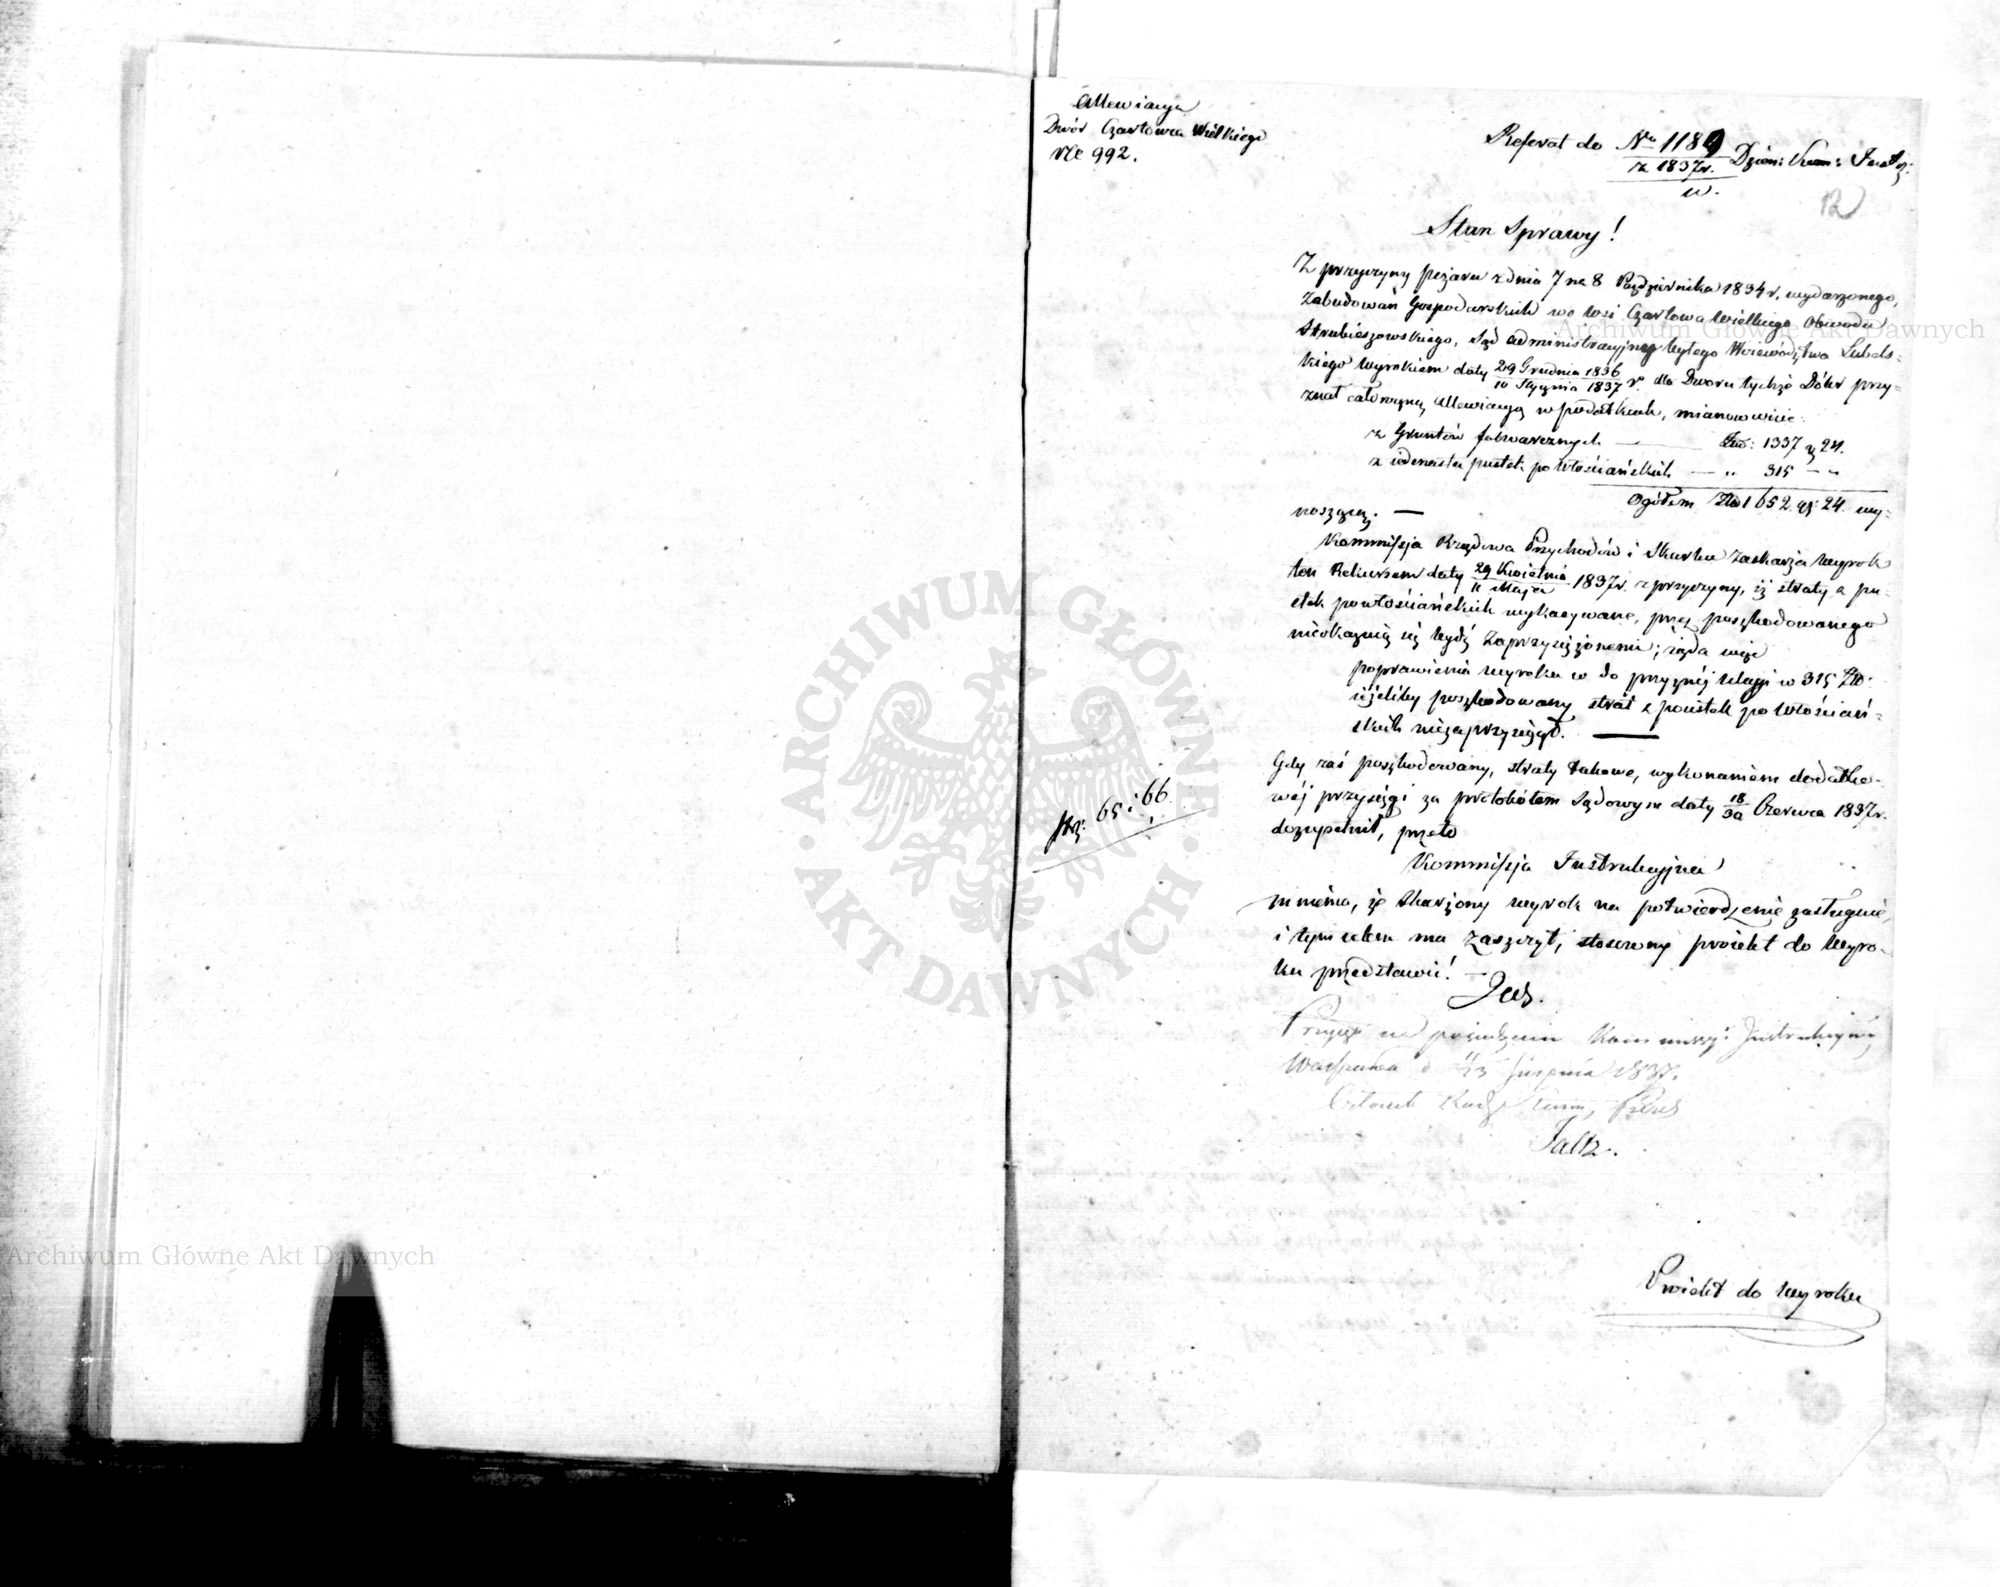 Allewiacya
Dwór Czartowca Wielkiego
Nro 992.
Referat do No 1189 Dzien: Kom: Instr:
z 1837 r.
w.
12
Stan Sprawy!
Z przyczyny pożaru z dnia 7 na 8 Października 1834 r. wydarzonego,
Zabudowań Gospodarskich we Wsi Czartowcu Wielkiego Obwodu
Hrubieszowskiego, Sąd administracyjny byłego Województwa Lubels-
kiego Wyrokiem daty 29 Grudnia 1836 / 10 Stycznia 1837 r. dla Dworu tychże Dóbr przy-
znał całoroczną Allewiacyą w podatkach, mianowicie:
z Gruntów folwarcznych — Złp: 1337 g 24.
z iedenastu pustek po Włościańskich — „ 315 – „
Ogółem Złp 1652 gr 24. wy-
noszącą. —
Kommissja Rządowa Przychodów i Skarbu Zaskarża Wyrok
ten Rekursem daty 29 Kwietnia / 11 Maja 1837 r. z przyczyny, iż straty z pu-
stek powłościańskich wykazywane, przez poszkodowanego
nieokazują się bydź Zaprzysiężonemi; żąda więc
poprawienia wyroku w do przyznéj ulagi w 315 Złp:
ieżeliby poszkodowany strat z pustek po Włościań-
skich niezaprzysiągł. —
Gdy zaś poszkodowany, straty takowe, wykonaniem dodatko-
wéj przysięgi za protokółem Sądowym daty 18/30 Czerwca 1837 r.
dozupełnił, przeto
str: 65 i 66
Kommissja Instrukcyjna
mniema, że skarżony wyrok na potwierdzenie zasługuie,
i tym celem ma zaszczyt, stosowny proiekt do Wyro-
ku przedstawić! —
Przyjęto na posiedzeniu Kommissyi Instrukcyjnéj
Warszawa d /13 Sierpnia 1837.
Członek Rady Stanu,
Faltz.
Proiekt do Wyroku
Archiwum Główne Akt Dawnych
Archiwum Główne Akt Dawnych
ARCHIWUM GŁÓWNE
AKT DAWNYCH